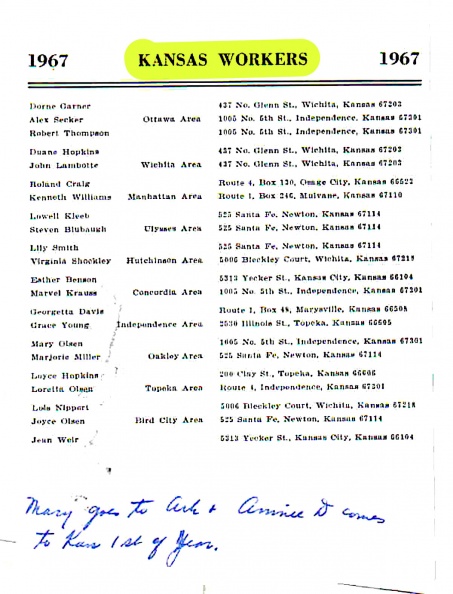 1967 KANSAS WORKERS 1967
Dorne Garner 437 No. Glenn St., Wichita, Kansas 67203
Alex Secker Ottawa Area 1005 No. 5th St., Independence, Kansas 67301
Robert Thompson 1005 No. 5th St., Independence, Kansas 67301
Duane Hopkins 437 No. Glenn St., Wichita, Kansas 67203
John Lambotte Wichita Area 437 No. Glenn St., Wichita, Kansas 67203
Roland Craig Route 4, Box 130, Osage City, Kansas 66523
Kenneth Williams Manhattan Area Route 1, Box 246, Mulvane, Kansas 67110
Lowell Kleeb 525 Santa Fe, Newton, Kansas 67114
Steven Blubaugh Ulysses Area 525 Santa Fe, Newton, Kansas 67114
Lily Smith 525 Santa Fe, Newton, Kansas 67114
Virginia Shockley Hutchinson Area 5006 Bleckley Court, Wichita, Kansas 67218
Esther Benson 5313 Yecker St., Kansas City, Kansas 66104
Marvel Krauss Concordia Area 1005 No. 5th St., Independence, Kansas 67301
Georgetta Davis Route 1, Box 48, Marysville, Kansas 66508
Grace Young Independence Area 2530 Illinois St., Topeka, Kansas 66605
Mary Olsen 1005 No. 5th St., Independence, Kansas 67301
Marjorie Miller Oakley Area 525 Santa Fe, Newton, Kansas 67114
Loyce Hopkins 200 Clay St., Topeka, Kansas 66606
Loretta Olsen Topeka Area Route 4, Independence, Kansas 67301
Lois Nippert 5006 Bleckley Court, Wichita, Kansas 67218
Joyce Olsen Bird City Area 525 Santa Fe, Newton, Kansas 67114
Jean Weir 5313 Yecker St., Kansas City, Kansas 66104
Mary goes to Ark & D comes
to Kan 1st of Year.